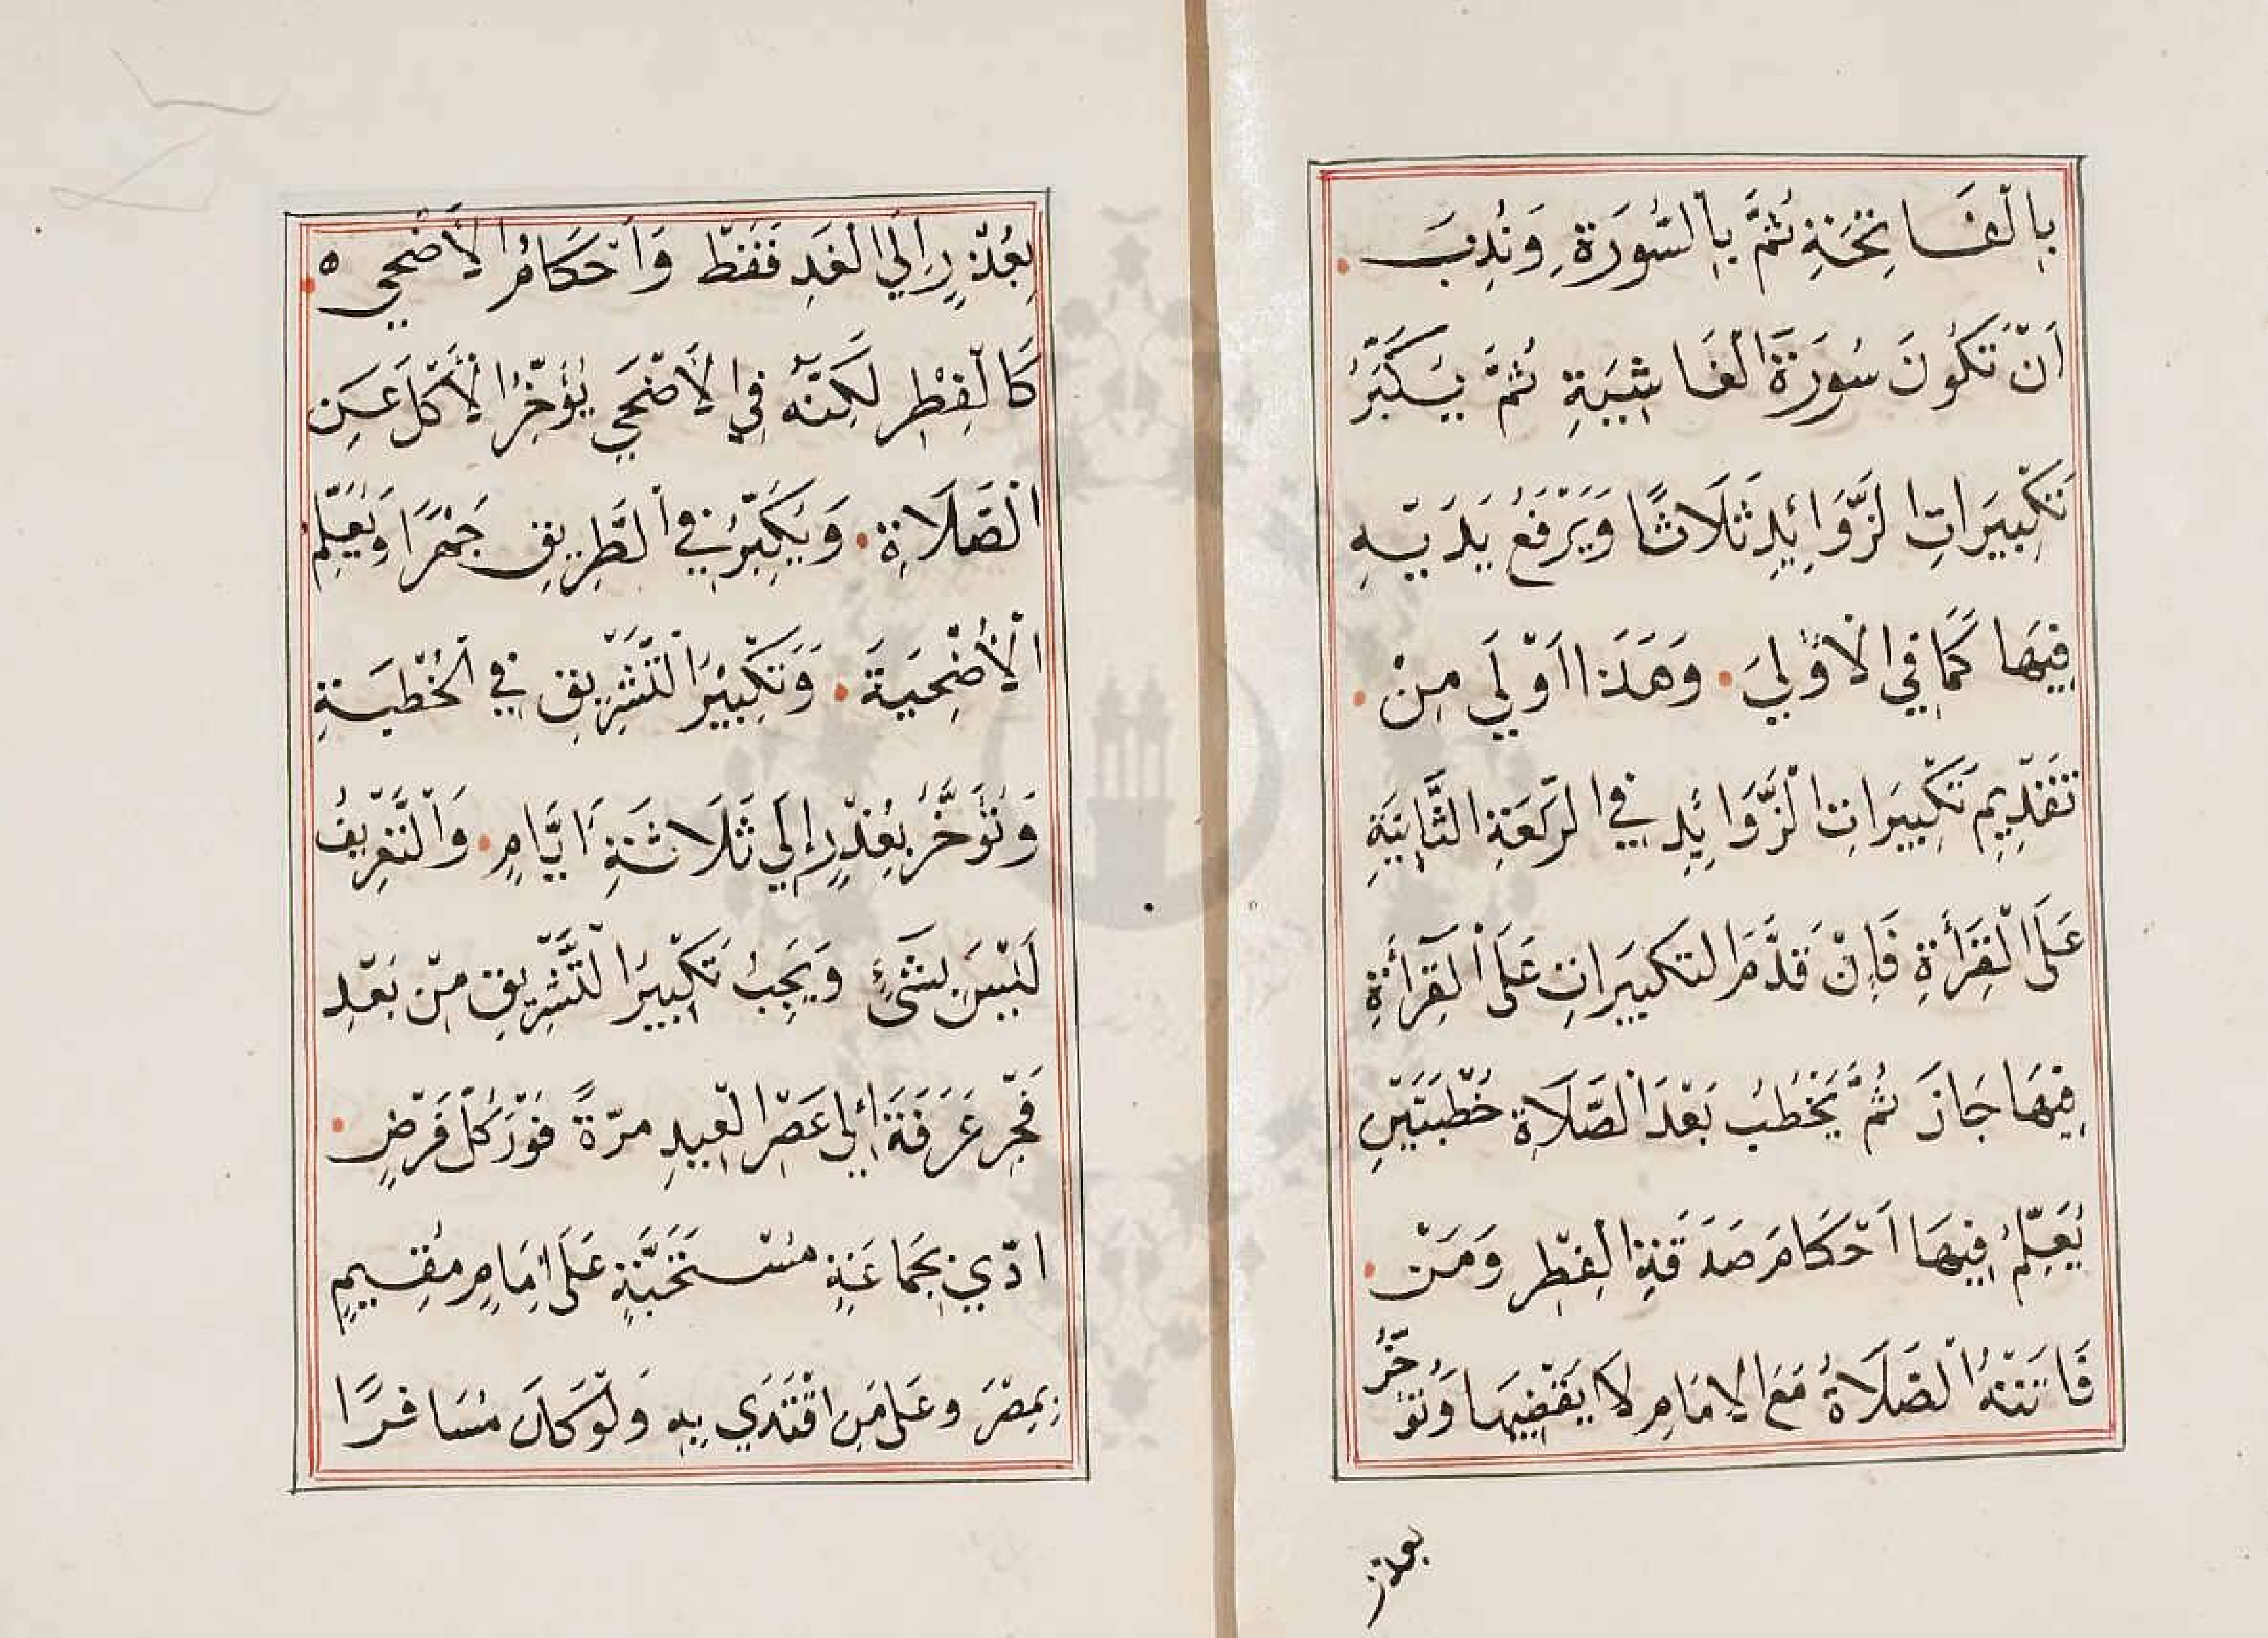 بِالْفَاتِحَةِ ثُمَّ بِالسُّورَةِ وَنُدِبَ
اَنْ تَكُونَ سُورَةَ الْغَاشِيَةِ ثُمَّ يُكَبِّرُ
تَكْبِيرَاتِ الزَّوَائِدِ ثَلَاثًا وَيَرْفَعُ يَدَيْهِ
فِيهَا كَمَا فِي الْاُولَي وَهَذَا اَوْلَي مِنْ
تَقْدِيمِ تَكْبِيرَاتِ الزَّوَائِدِ فِي الرَّكْعَةِ الثَّانِيَةِ
عَلَى الْقِرَأَةِ فَاِنْ قَدَّمَ التَكبيرَاتِ عَلَى الْقِرَأَةِ
فِيهَا جَازَ ثُمَّ يَخْطُبُ بَعْدَ الصَّلَاةِ خُطْبَتَيْنِ
يُعَلِّمُ فِيهَا اَحْكَامَ صَدَقَةِ الْفِطْرِ وَمَنْ
فَاتَتْهُ الصَّلَاةُ مَعَ الاِمَامِ لَا يَقْضِيهَا وَتُؤَخَّرُ
بعذر
بِعُذْرٍ اِلَي الْغَدِ فَقَطْ وَاَحْكَامُ الْأَضْحَي ه
كَالْفِطْرِ لَكِنَّهُ فِي الْأَضْحَي يُؤَخِّرُ الْأَكْلَ عَنِ
الْصَّلَاةِ وَيُكَبِّرُ فِي الطَّرِيقِ جَهْرًا وَيُعَلِّمُ
الْأُضْحِيَةَ وَتَكْبِيرَ التَّشْرِيقِ فِي الْخُطْبَةِ
وَتُؤَخَّرُ بِعُذْرٍ إلَي ثَلَاثَةِ اَيَّامٍ وَالْتَّعْرِيفُ
لَيْسَ بِشَيْءٍ وَيَجِبُ تَكْبِيرُ الْتَّشْرِيقِ مِنْ بَعْدِ
فَجْرِ عَرَفَةَ اِلي عَصْرِ الْعِيدِ مرّةً فَوْرَ كُلِّ فَرْضٍ
ادّيَ بِجَمَاعَةٍ مُسْتَحَبَّةٍ عَلَى اِمَامٍ مُقِيمٍ
بِمِصْرَ وعَلَى مَنِ اقْتَدَي بِهِ وَلَوْ كَانَ مُسَافرًا